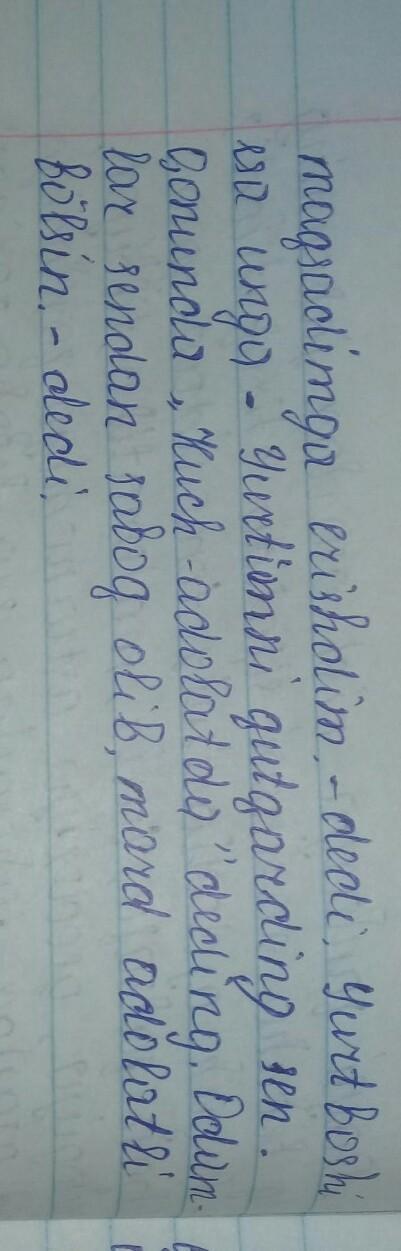 maqsadimga erishdim, - dedi, Yurt boshi
esa unga - Yurtimni qutqarding sen.
Qonunda „Kuch - adolatda" deding. Odam-
lar sendan saboq olib, mard adolatli
bo'lsin, - dedi.